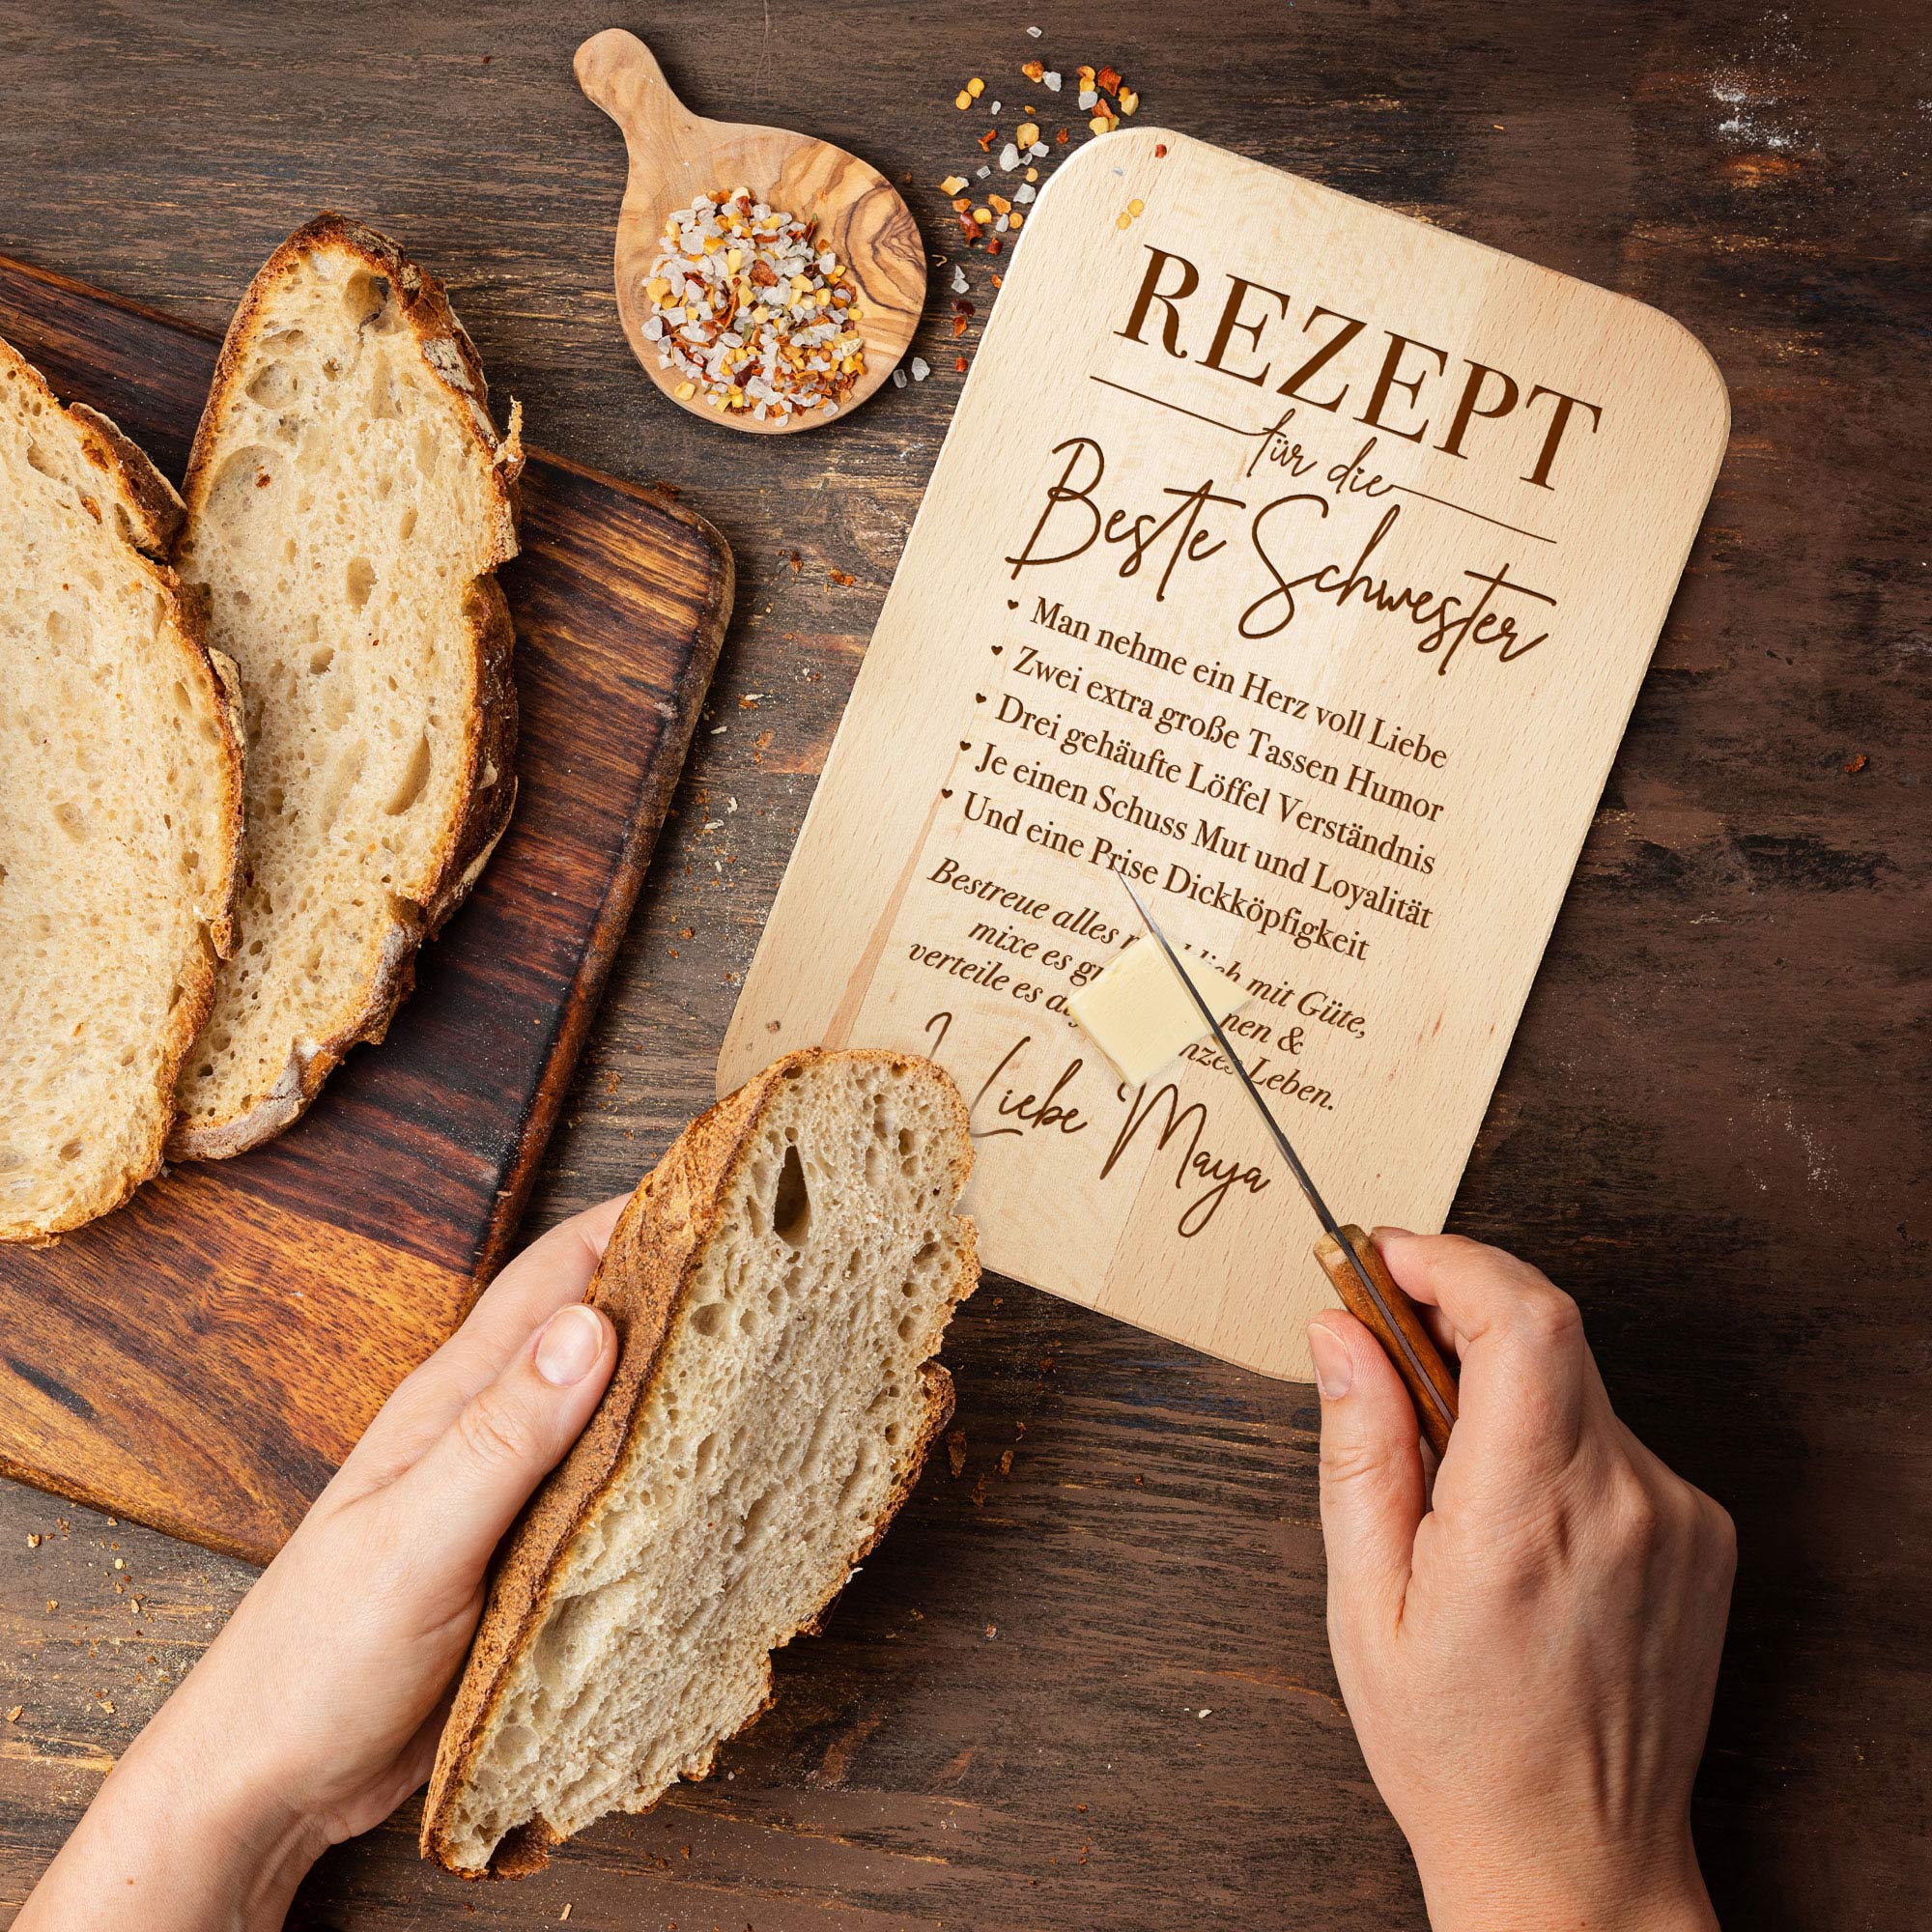 REZEPT
für die
Beste Schwester
Man nehme ein Herz voll Liebe
Zwei extra große Tassen Humor
Drei gehäufte Löffel Verständnis
Je einen Schuss Mut und Loyalität
Und eine Prise Dickköpfigkeit
Bestreue alles mit Güte,
mixe es &
verteile es Leben.
Liebe Maya